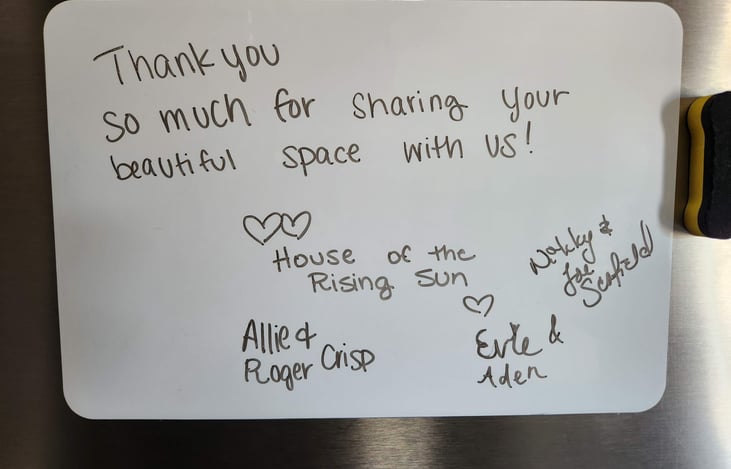 Thank you
so much for sharing your
beautiful space with us!
House of the
Rising Sun
& Joe
Allie &
Roger Crisp
&
Aden